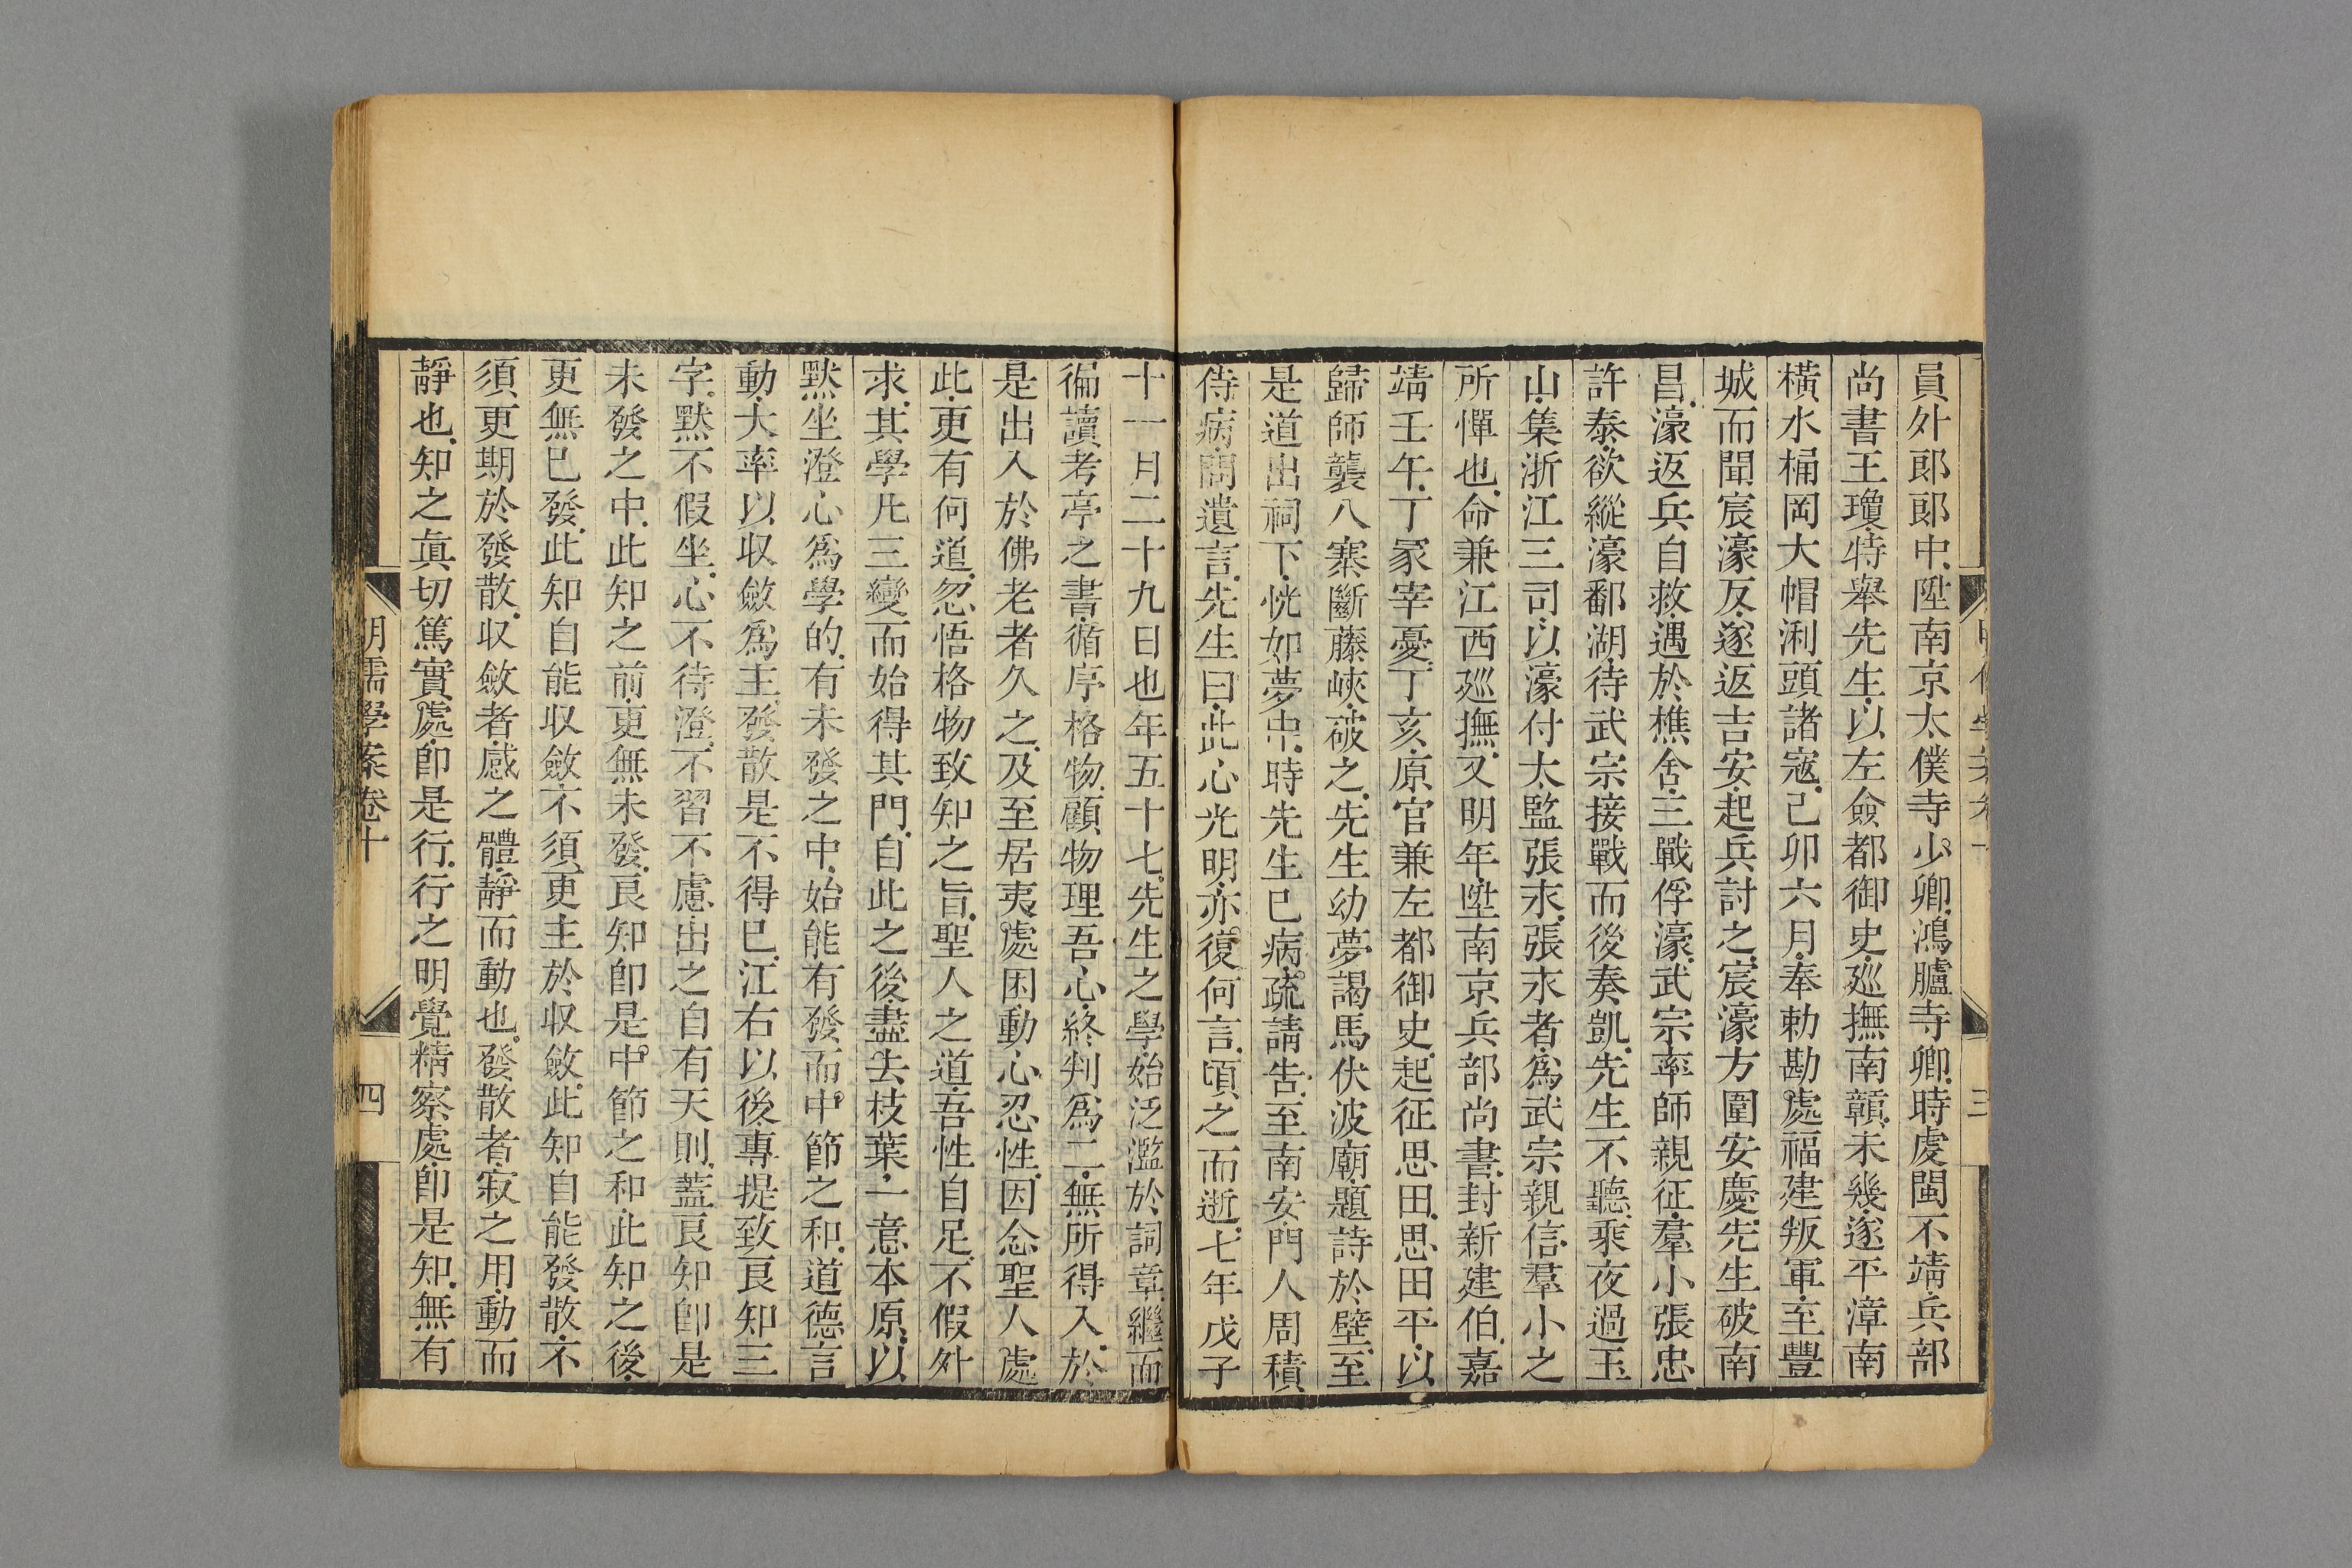 員外郎郎中陞南京太僕寺少卿鴻臚寺卿時虔閩不靖兵部
尚書王瓊特舉先生以左僉都御史廵撫南贛未幾遂平漳南
橫水桶岡大帽浰頭諸寇己卯六月奉勅勘處福建叛軍至豐
城而聞宸濠反遂返吉安起兵討之宸濠方圍安慶先生破南
昌濠返兵自救遇於樵舍三戰俘濠武宗率師親征羣小張忠
許泰欲縱濠鄱湖待武宗接戰而後奏凱先生不聽乘夜過玉
山集浙江三司以濠付太監張永張永者爲武宗親信羣小之
所憚也命兼江西廵撫又明年陞南京兵部尚書封新建伯嘉
靖壬午丁冢宰憂丁亥原官兼左都御史起征思田思田平以
歸師襲八寨斷藤峽破之先生幼夢謁馬伏波廟題詩於壁至
是道出祠下恍如夢中時先生已病疏請告至南安門人周積
侍病問遺言先生曰此心光明亦復何言頃之而逝七年戊子
十一月二十九日也年五十七先生之學始泛濫於詞章繼而
徧讀考亭之書循序格物顧物理吾心終判爲二無所得入於
是出入於佛老者久之及至居夷處困動心忍性因念聖人處
此更有何道忽悟格物致知之旨聖人之道吾性自足不假外
求其學凡三變而始得其門自此之後盡去枝葉一意本原以
默坐澄心爲學的有未發之中始能有發而中節之和道德言
動大率以收斂爲主發散是不得已江右以後專提致良知三
字默不假坐心不待澄不習不慮出之自有天則蓋良知卽是
未發之中此知之前更無未發良知卽是中節之和此知之後
更無已發此知自能收斂不須更主於收斂此知自能發散不
須更期於發散收斂者感之體靜而動也發散者寂之用動而
靜也知之眞切篤實處卽是行行之明覺精察處卽是知無有
明儒學案卷十
四